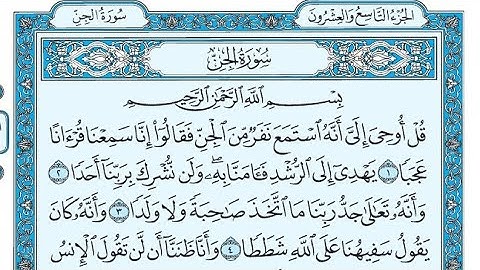 الجزء التاسع والعشرون
سورة الجن
سُورَةُ الجِنِّ
بِسْمِ اللَّهِ الرَّحْمَٰنِ الرَّحِيمِ
قُلْ أُوحِيَ إِلَيَّ أَنَّهُ ٱسْتَمَعَ نَفَرٌ مِّنَ ٱلْجِنِّ فَقَالُوٓا۟ إِنَّا سَمِعْنَا قُرْءَانًا
عَجَبًا ١ يَهْدِىٓ إِلَى ٱلرُّشْدِ فَـَٔامَنَّا بِهِۦ ۖ وَلَن نُّشْرِكَ بِرَبِّنَآ أَحَدًا ٢
وَأَنَّهُۥ تَعَٰلَىٰ جَدُّ رَبِّنَا مَا ٱتَّخَذَ صَٰحِبَةً وَلَا وَلَدًا ٣ وَأَنَّهُۥ كَانَ
يَقُولُ سَفِيهُنَا عَلَى ٱللَّهِ شَطَطًا ٤ وَأَنَّا ظَنَنَّآ أَن لَّن تَقُولَ ٱلْإِنسُ